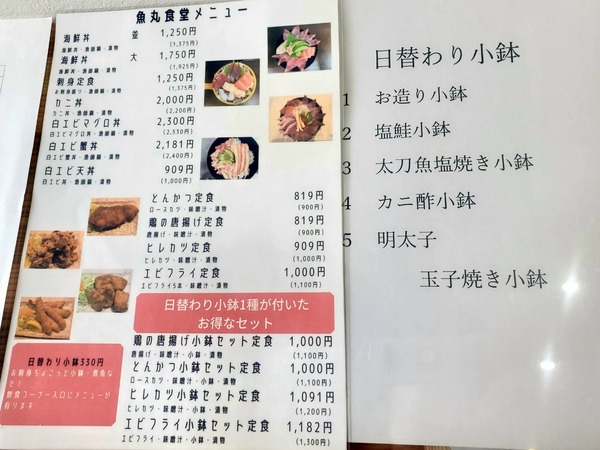 魚丸食堂メニュー
海鮮丼 並 1,250円
海鮮丼・漁師鍋・漬物 (1,375円)
海鮮丼 大 1,750円
海鮮丼・漁師鍋・漬物 (1,925円)
刺身定食 1,250円
お刺身盛り・漁師鍋・漬物 (1,375円)
カニ丼 2,000円
カニ丼・漁師鍋・漬物 (2,200円)
白エビマグロ丼 2,300円
白エビマグロ丼・漁師鍋・漬物 (2,530円)
白エビ蟹丼 2,181円
白エビ蟹丼・漁師鍋・漬物 (2,400円)
白エビ天丼 909円
白エビ丼・漁師鍋・漬物 (1,000円)
とんかつ定食 819円
ロースカツ・味噌汁・漬物 (900円)
鶏の唐揚げ定食 819円
唐揚げ・味噌汁・漬物 (900円)
ヒレカツ定食 909円
ヒレカツ・味噌汁・漬物 (1,000円)
エビフライ定食 1,000円
エビフライ5本・味噌汁・漬物 (1,100円)
日替わり小鉢1種が付いた
お得なセット
鶏の唐揚げ小鉢セット定食 1,000円
唐揚げ・味噌汁・小鉢・漬物 (1,100円)
とんかつ小鉢セット定食 1,000円
ロースカツ・味噌汁・小鉢・漬物 (1,100円)
ヒレカツ小鉢セット定食 1,091円
ヒレカツ・味噌汁・小鉢・漬物 (1,200円)
エビフライ小鉢セット定食 1,182円
エビフライ・味噌汁・小鉢・漬物 (1,300円)
日替わり小鉢330円
お刺身ちょこっと小鉢・煮魚な
ど!
飲食コーナー入口にメニューが
有ります
日替わり小鉢
1 お造り小鉢
2 塩鮭小鉢
3 太刀魚塩焼き小鉢
4 カニ酢小鉢
5 明太子
玉子焼き小鉢